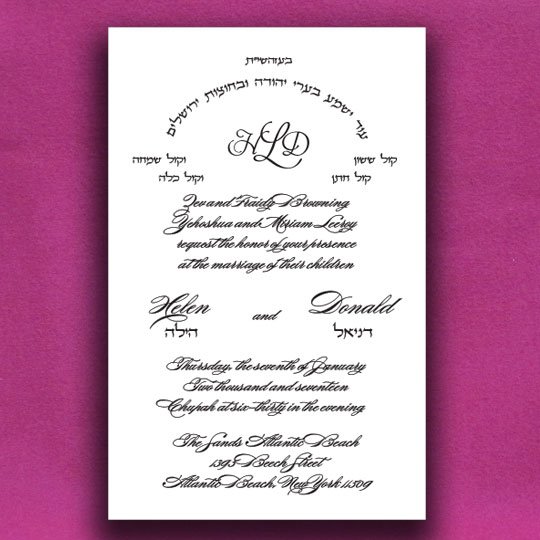 בעזהשי״ת
עוד ישמע בערי יהודה ובחוצות ירושלים
HLD
קול ששון וקול שמחה
קול חתן וקול כלה
Zev and Fraidy Browning
Yehoshua and Miriam Leeroy
request the honor of your presence
at the marriage of their children
Helen and Donald
הילה דניאל
Thursday, the seventh of January
Two thousand and seventeen
Chupah at six-thirty in the evening
The Sands Atlantic Beach
1395 Beech Street
Atlantic Beach, New York 11509